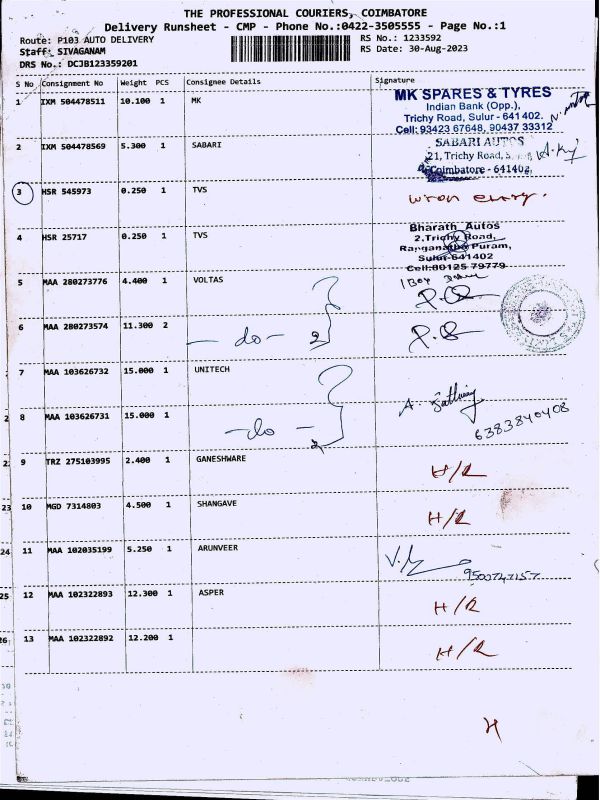 THE PROFESSIONAL COURIERS, COIMBATORE
Delivery Runsheet - CMP - Phone No.:0422-3505555 - Page No.:1
Route: P103 AUTO DELIVERY RS No.: 1233592
Staff: SIVAGANAM RS Date: 30-Aug-2023
DRS No.: DCJB123359201
S No Consignment No Weight PCS Consignee Details Signature
1 IXM 504478511 10.100 1 MK
MK SPARES & TYRES
Indian Bank (Opp.),
Trichy Road, Sulur - 641 402.
Cell: 93423 67648, 90437 33312
2 IXM 504478569 5.300 1 SABARI
SABARI AUTOS
21, Trichy Road,
Coimbatore - 641402.
3 HSR 545973 0.250 1 TVS
4 HSR 25717 0.250 1 TVS
Bharath Autos
2,Trichy Road,
Ranganatha Puram,
Sulur-641402
Cell:80125 79779
5 MAA 280273776 4.400 1 VOLTAS
6 MAA 280273574 11.300 2 — do — 2
7 MAA 103626732 15.000 1 UNITECH
8 MAA 103626731 15.000 1 — do — 2
6383840408
9 TRZ 275103995 2.400 1 GANESHWARE H/R
10 MGD 7314803 4.500 1 SHANGAVE H/R
11 MAA 102035199 5.250 1 ARUNVEER
12 MAA 102322893 12.300 1 ASPER H/R
13 MAA 102322892 12.200 1 H/R